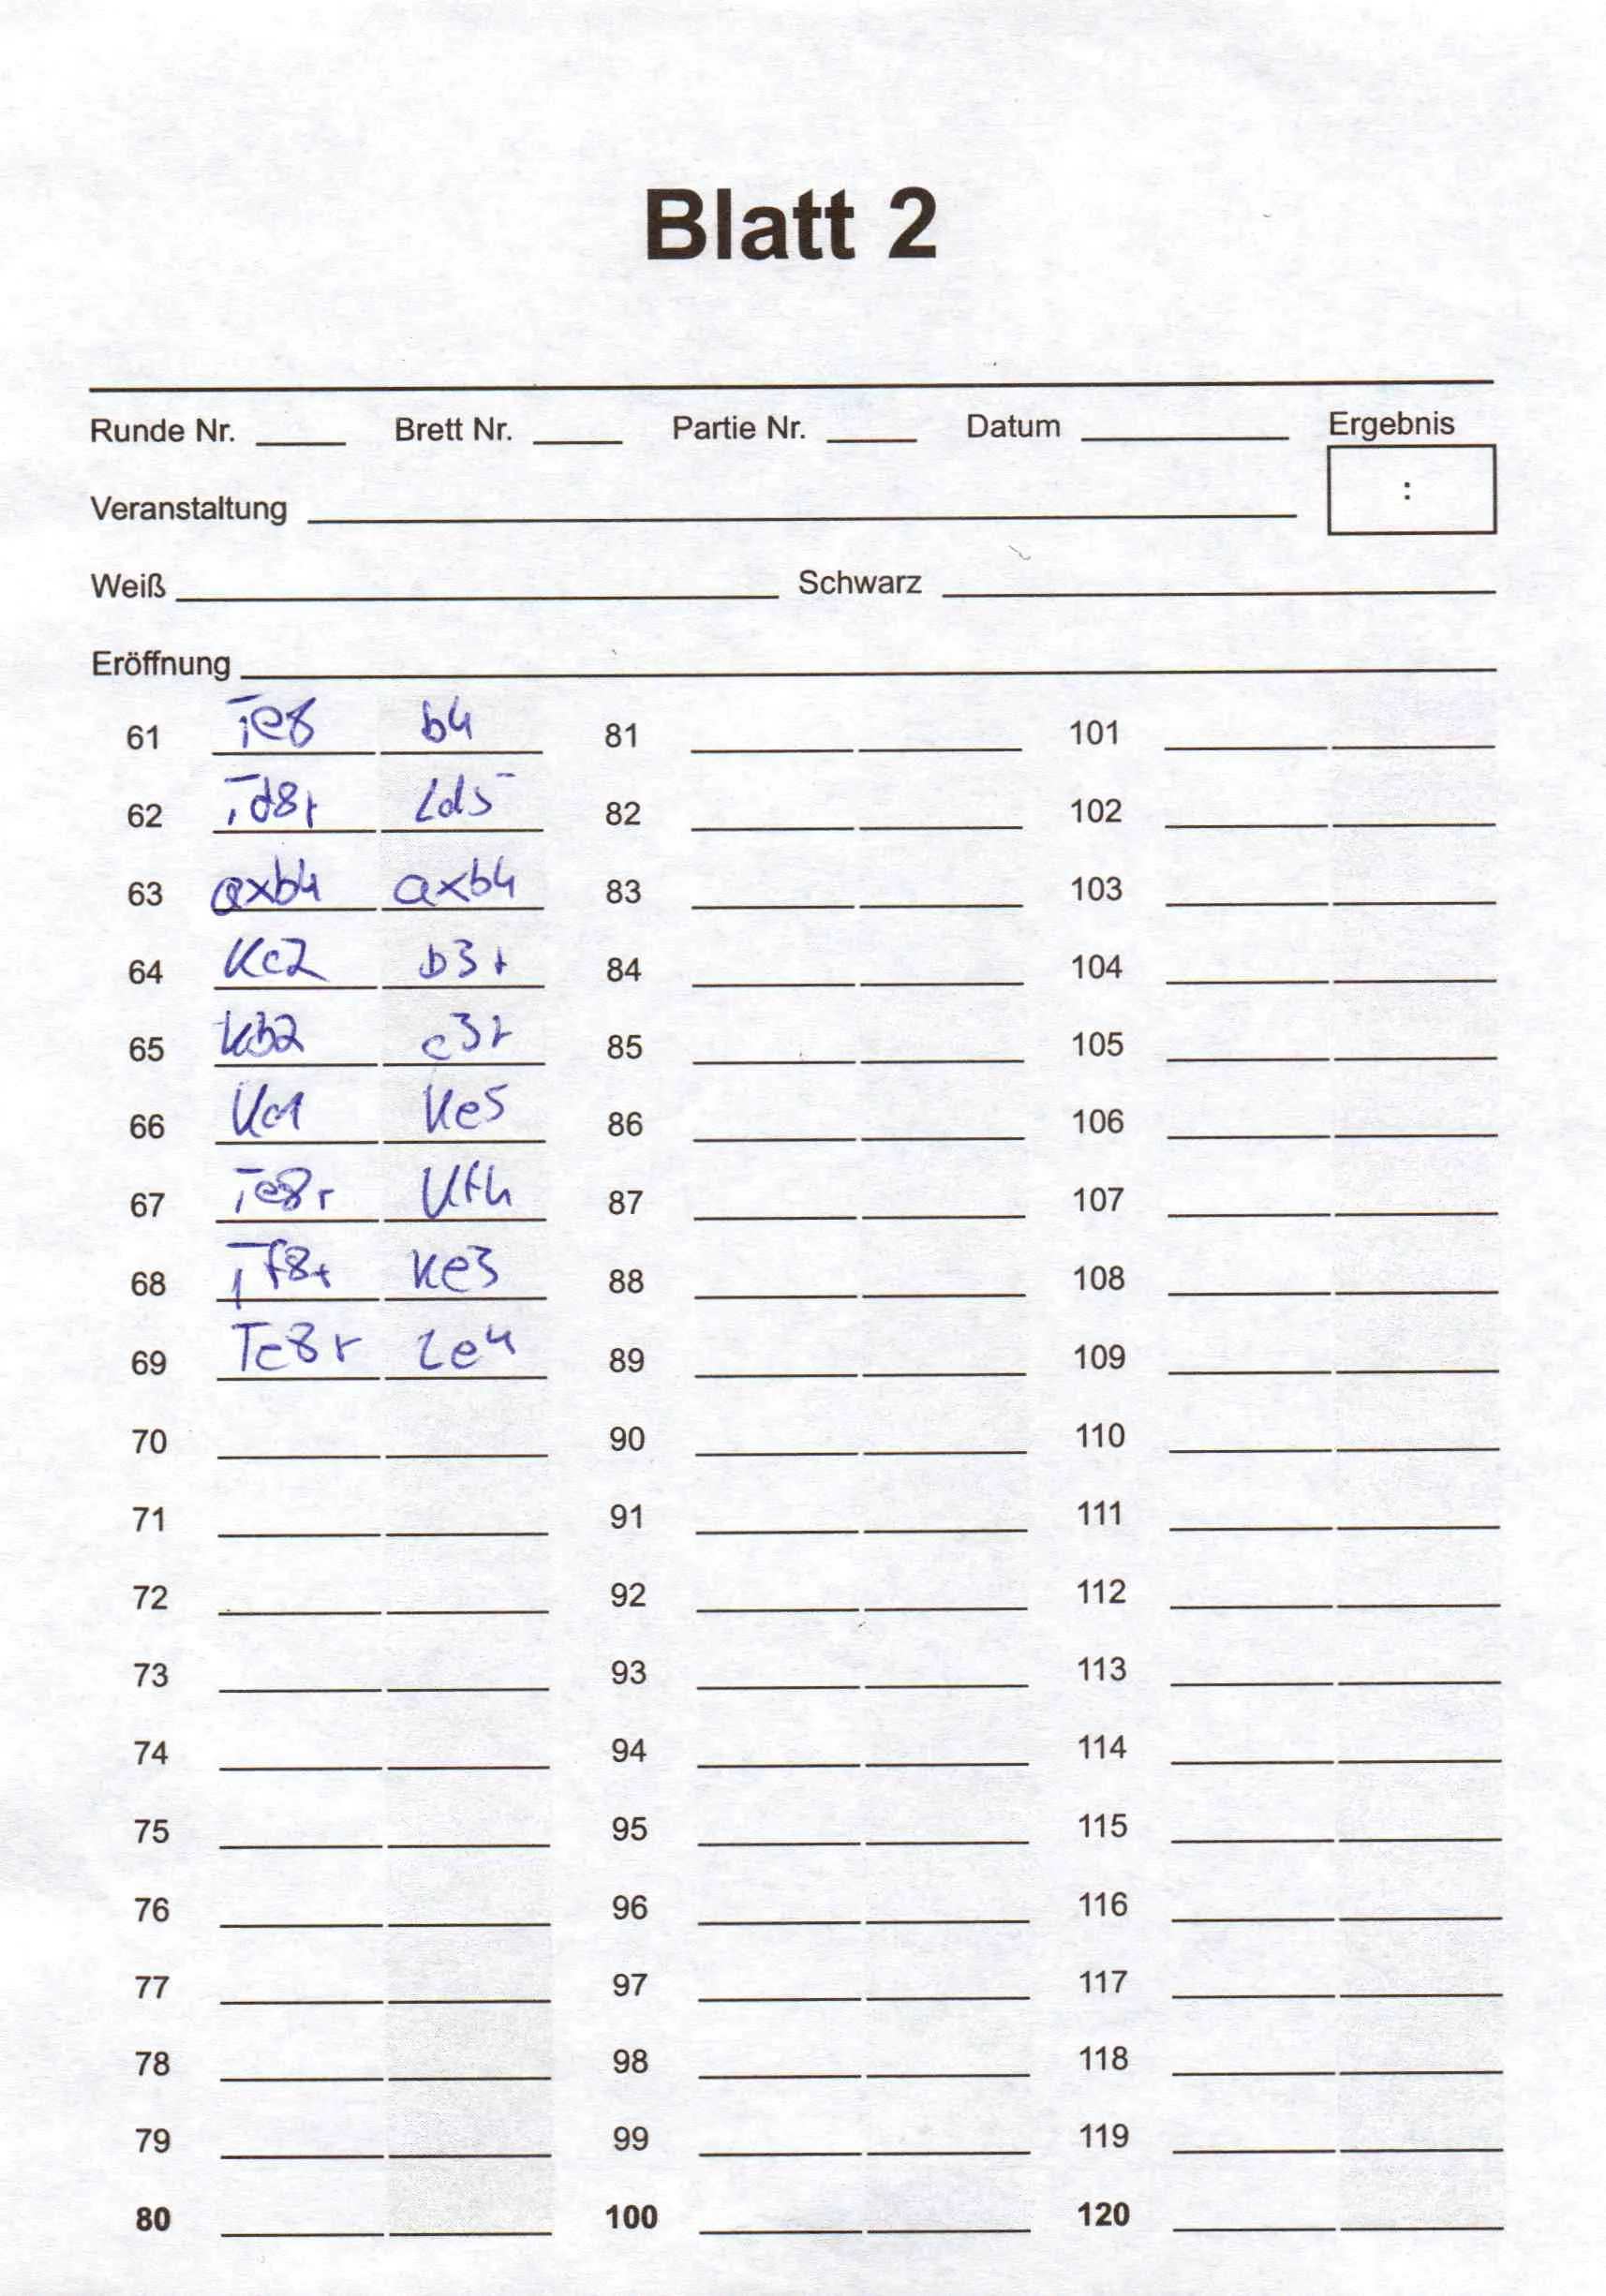 Blatt 2
Runde Nr. Brett Nr. Partie Nr. Datum Ergebnis
:
Veranstaltung
Weiß Schwarz
Eröffnung
61 Te8 b4 81 101
62 Td8+ Ld5 82 102
63 axb4 axb4 83 103
64 Kc2 b3+ 84 104
65 Kb2 c3+ 85 105
66 Kc1 Ke5 86 106
67 Te8+ Kf4 87 107
68 Tf8+ Ke3 88 108
69 Te8+ Le4 89 109
70 90 110
71 91 111
72 92 112
73 93 113
74 94 114
75 95 115
76 96 116
77 97 117
78 98 118
79 99 119
80 100 120